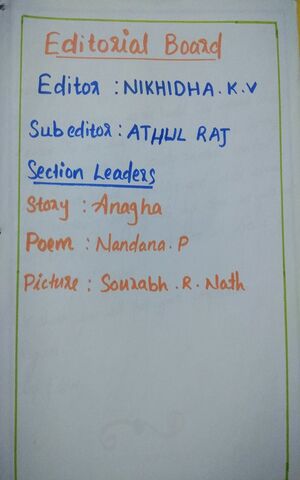 Editorial Board
Editor : NIKHIDHA. K. V
Sub editor : ATHUL RAJ
Section Leaders
Story : Anagha
Poem : Nandana. P
Picture : Sourabh. R. Nath